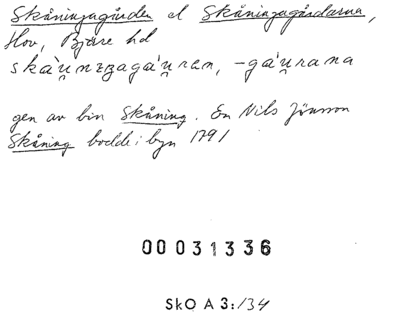 Skåningagården el Skåningagårdarna,
Hov, Bjäre hd
skáu̯nɪŋagáu̯ren, -gáu̯rana
gen av bin Skåning. En Nils Jönsson
Skåning bodde i byn 1791
00031336
SkO A 3:134